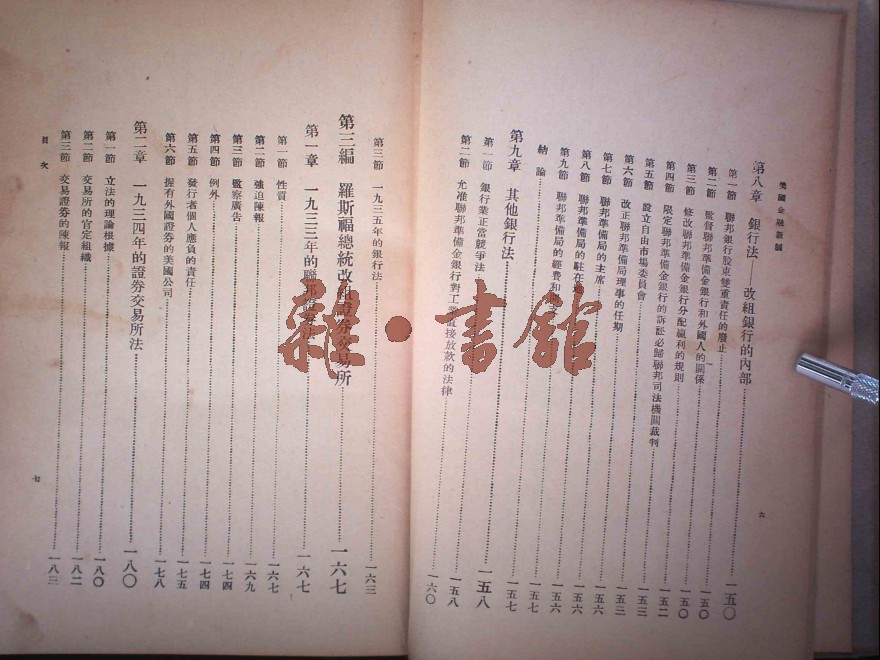 美國金融新制
第八章 銀行法——改組銀行的內部……一五〇
第一節 聯邦銀行股東雙重責任的廢止……一五〇
第二節 監督聯邦準備金銀行和外國人的關係……一五〇
第三節 修改聯邦準備金銀行分配贏利的規則……一五〇
第四節 限定聯邦準備金銀行的訴訟必歸聯邦司法機關裁判……一五二
第五節 設立自由市場委員會……一五三
第六節 改正聯邦準備局理事的任期……一五三
第七節 聯邦準備局的主席……一五六
第八節 聯邦準備局的駐在……一五六
第九節 聯邦準備局的經費和……一五六
結論……一五七
第九章 其他銀行法……一五七
第一節 銀行業正當競爭法……一五八
第二節 允准聯邦準備金銀行對工業直接放款的法律……一六〇
六
第三節 一九三五年的銀行法……一六三
第三編 羅斯福總統改組證券交易所……一六七
第一章 一九三三年的聯邦證券法……一六七
第一節 性質……一六七
第二節 強迫陳報……一六九
第三節 監察廣告……一七四
第四節 例外……一七四
第五節 發行者個人應負的責任……一七五
第六節 握有外國證券的美國公司……一七八
第二章 一九三四年的證券交易所法……一八〇
第一節 立法的理論根據……一八〇
第二節 交易所的官定組織……一八二
第三節 交易證券的陳報……一八三
目次
七
雜·書館